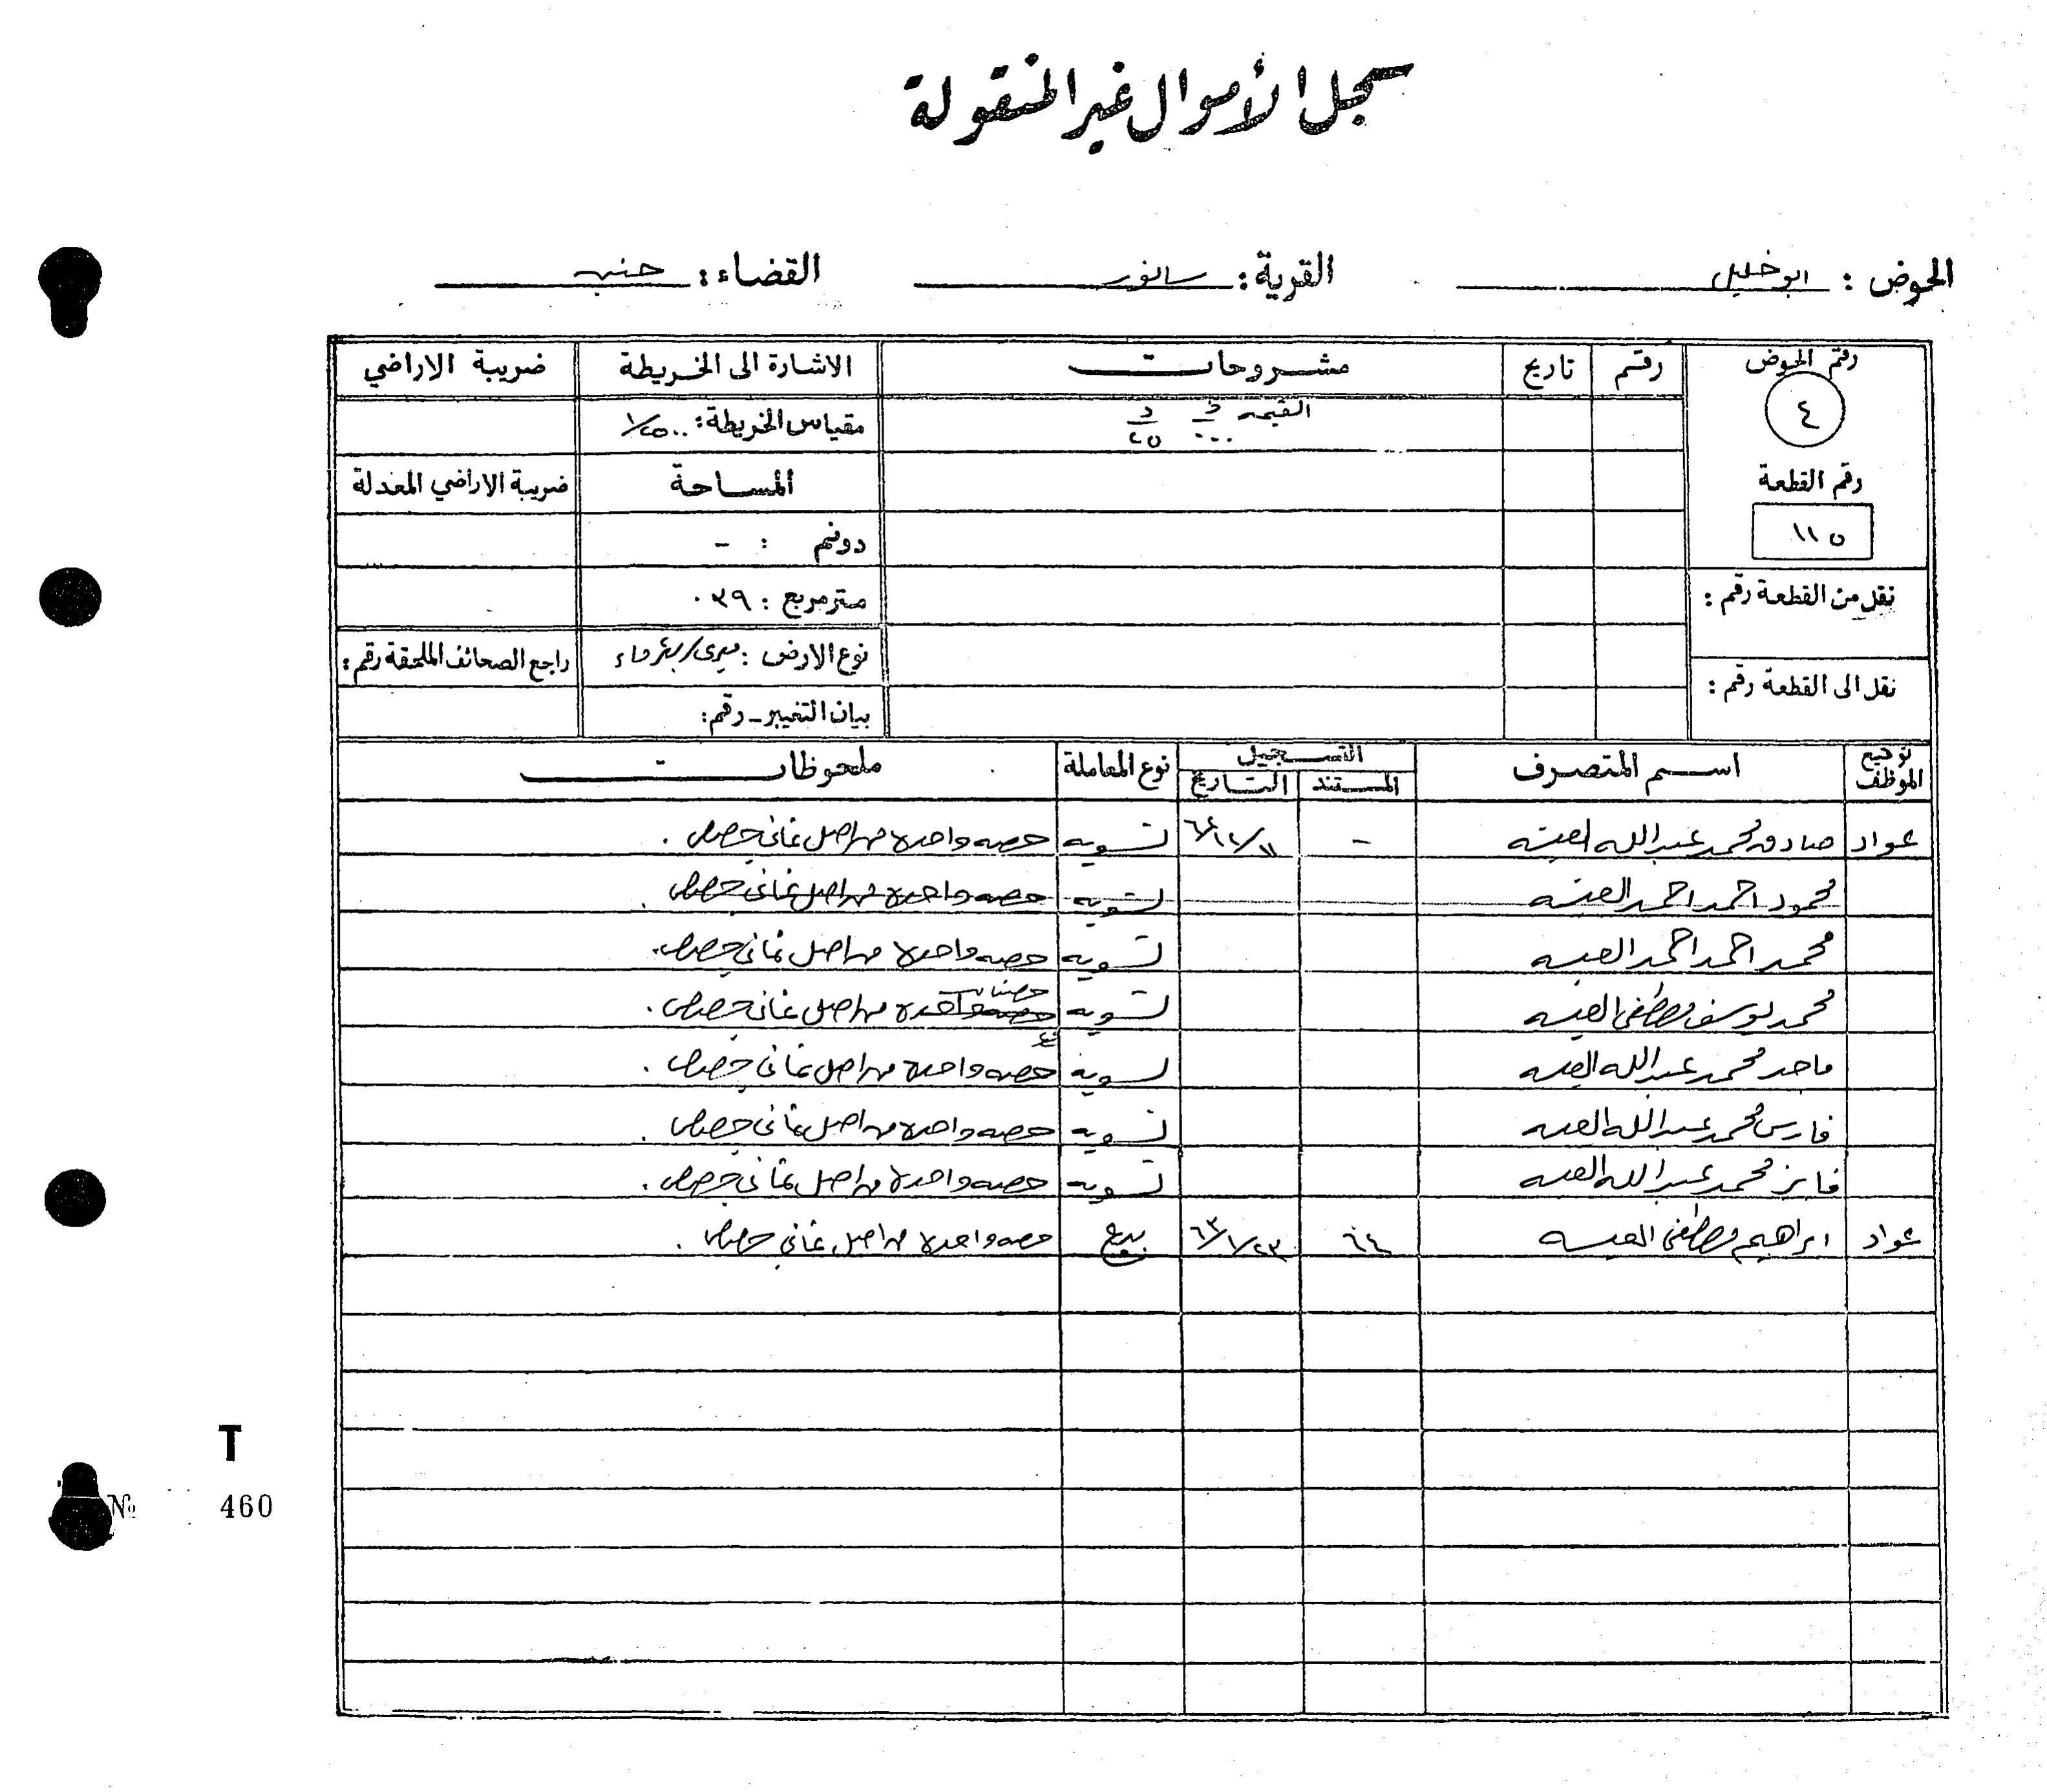 سجل الأموال غير المنقولة
الحوض : ابو خليل القرية : سانور القضاء : جنين
رقم الحوض رقم تاريخ مشروحات الاشارة الى الخريطة ضريبة الاراضي
٤ القيمه ف د مقياس الخريطة : ١/٢٥٠٠
... ٢٥
رقم القطعة المساحة ضريبة الاراضي المعدلة
١١٥ دونم : -
نقل من القطعة رقم : متر مربع : ٠٣٩
نوع الارض : ميري / بئر ماء راجع الصحائف الملحقة رقم :
نقل الى القطعة رقم : بيان التغيير - رقم :
توقيع الموظف اسم المتصرف التسجيل نوع المعاملة ملحوظات
المستند التاريخ
عواد صادق محمد عبدالله - تسويه حصه واحده من اصل ثماني حصص .
محمود احمد احمد تسويه حصه واحده من اصل ثماني حصص .
محمد احمد احمد تسويه حصه واحده من اصل ثماني حصص .
حصتان
محمد يوسف مصطفى تسويه حصه واحده من اصل ثماني حصص .
ماجد محمد عبدالله تسويه حصه واحده من اصل ثماني حصص .
فارس محمد عبدالله تسويه حصه واحده من اصل ثماني حصص .
فايز محمد عبدالله تسويه حصه واحده من اصل ثماني حصص .
عواد ابراهيم مصطفى ٦٤ ٢٣/١/٦٣ بيع حصه واحده من اصل ثماني حصص .
T
№ 460